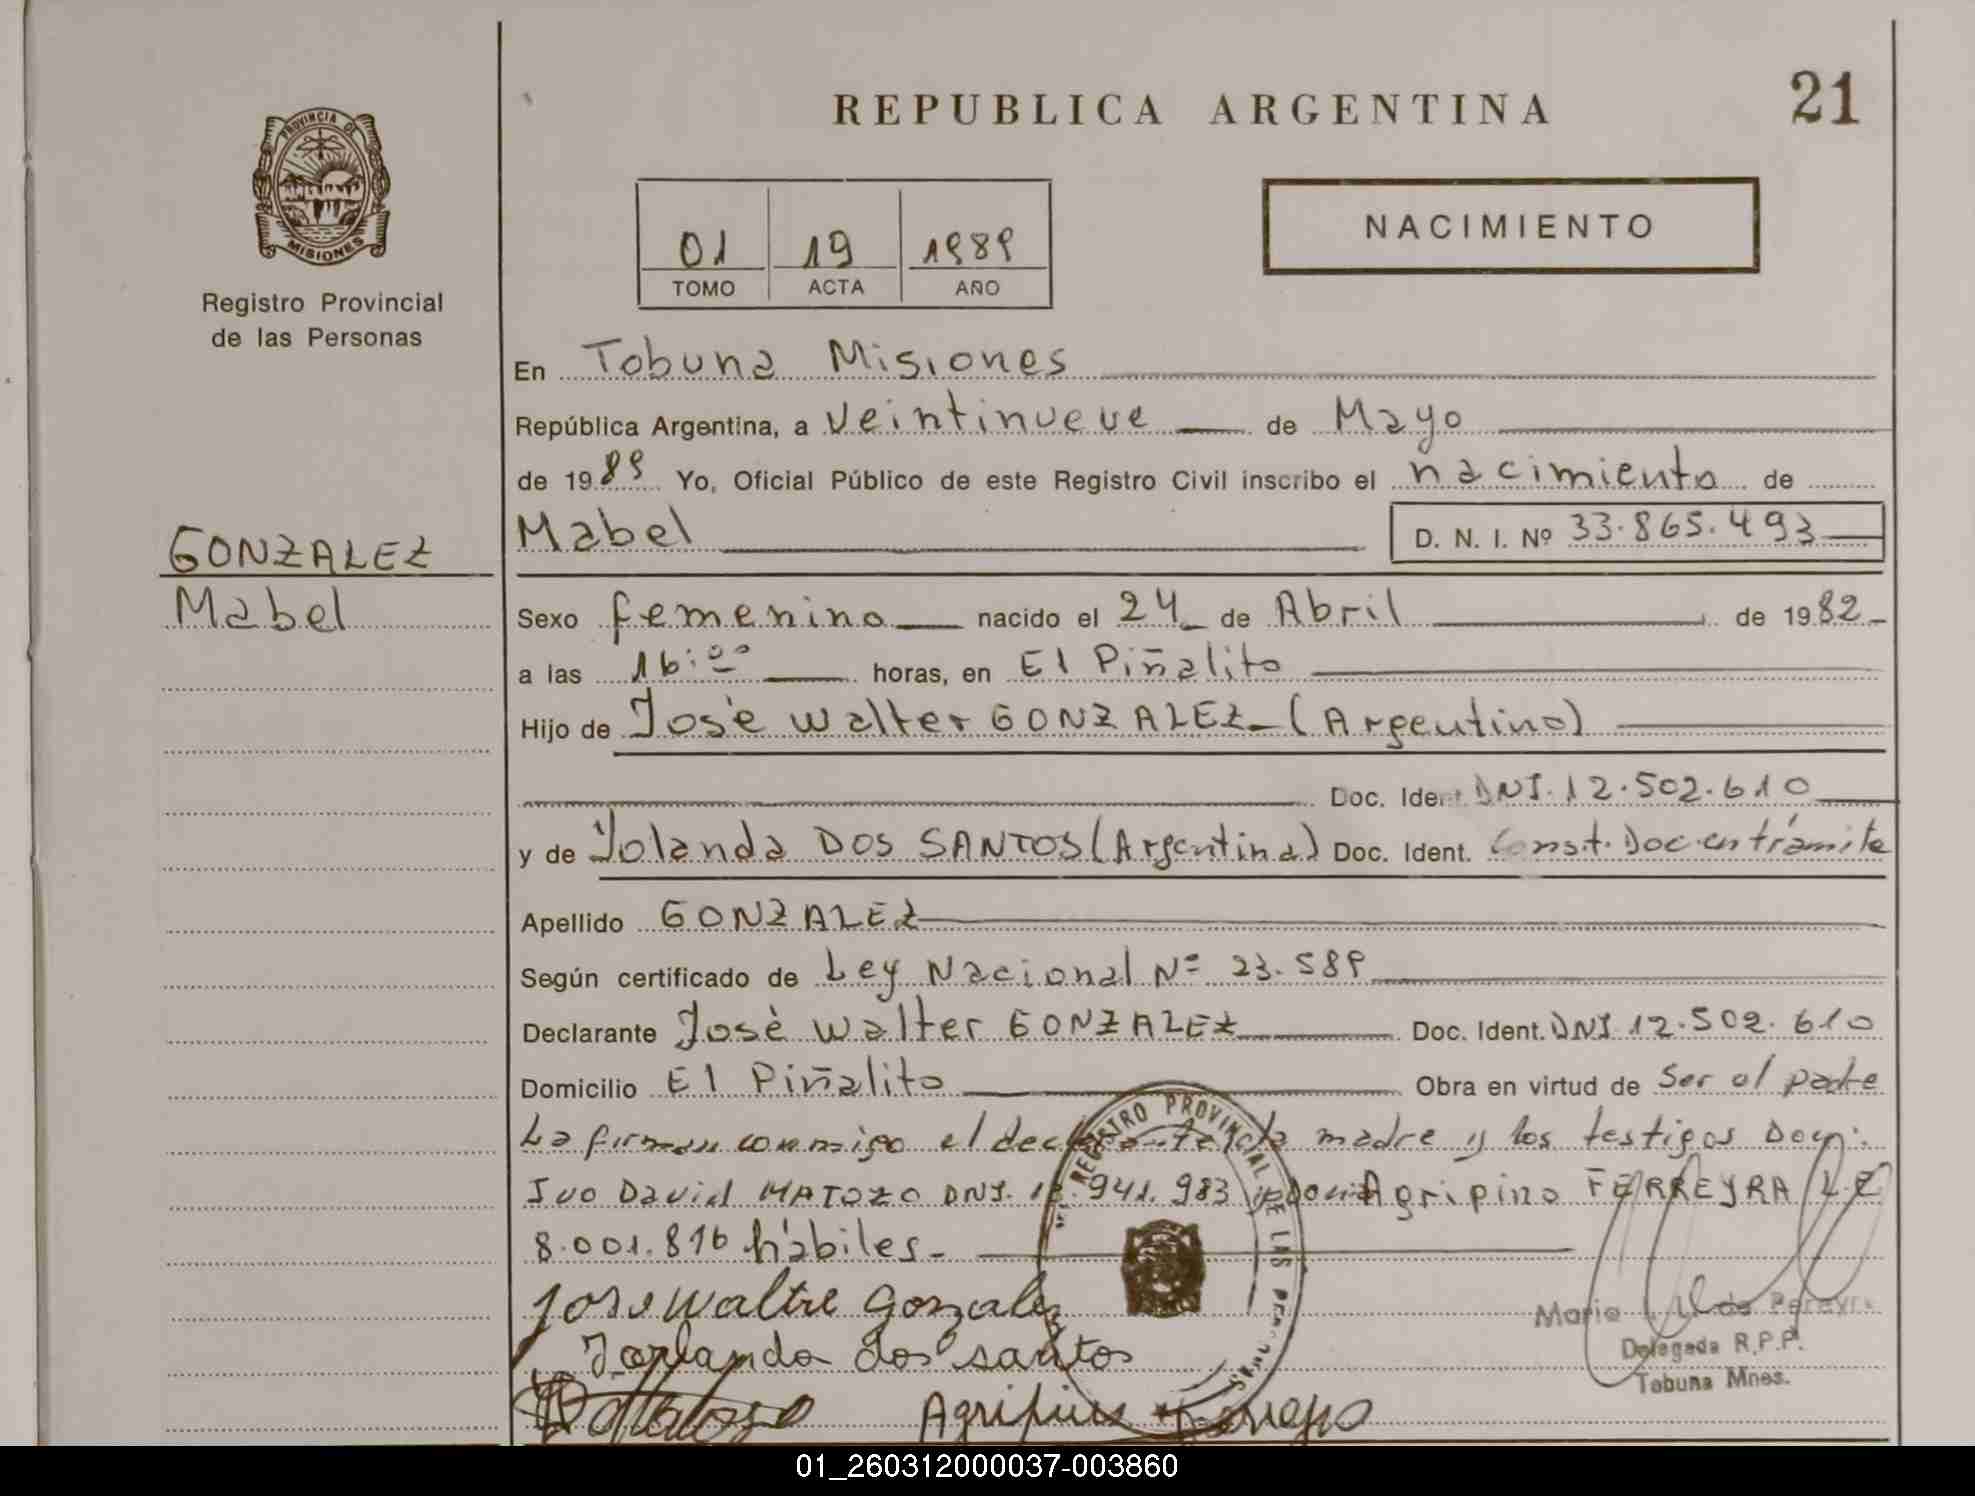 REPUBLICA ARGENTINA
21
PROVINCIA DE
MISIONES
Registro Provincial
de las Personas
01 19 1989
TOMO ACTA AÑO
NACIMIENTO
En Tobuna Misiones
República Argentina, a Veintinueve de Mayo
de 1989 Yo, Oficial Público de este Registro Civil inscribo el nacimiento de
GONZALEZ
Mabel
Mabel D. N. I. Nº 33.865.493
Sexo femenino nacido el 24 de Abril de 1982
a las 16:00 horas, en El Piñalito
Hijo de José Walter GONZALEZ (Argentino)
Doc. Ident. DNI. 12.502.610
y de Yolanda DOS SANTOS (Argentina) Doc. Ident. Const. Doc. en trámite
Apellido GONZALEZ
Según certificado de Ley Nacional Nº 23.589
Declarante José Walter GONZALEZ Doc. Ident. DNI 12.502.610
Domicilio El Piñalito Obra en virtud de Ser el padre
La firman conmigo el declarante, la madre y los testigos Don:
Ivo David MATOZO DNI. 941.983 y Don Agripino FERREYRA L.E
8.001.816 hábiles.
REGISTRO PROVINCIAL DE LAS PERSONAS
Jose Waltre Gonzalez
Yorlando dos santos
Agripino
de Pereyra
Delegada R.P.P.
Tobuna Mnes.
01_260312000037-003860